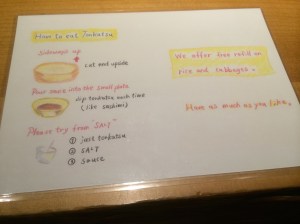 How to eat Tonkatsu
Sideways up
eat and update
Pour sauce into the small plate
dip tonkatsu each time
(like sashimi)
Please try from "SALT"
① just tonkatsu
② SALT
③ sauce
We offer free refill on
rice and cabbages.
Have as much as you like.